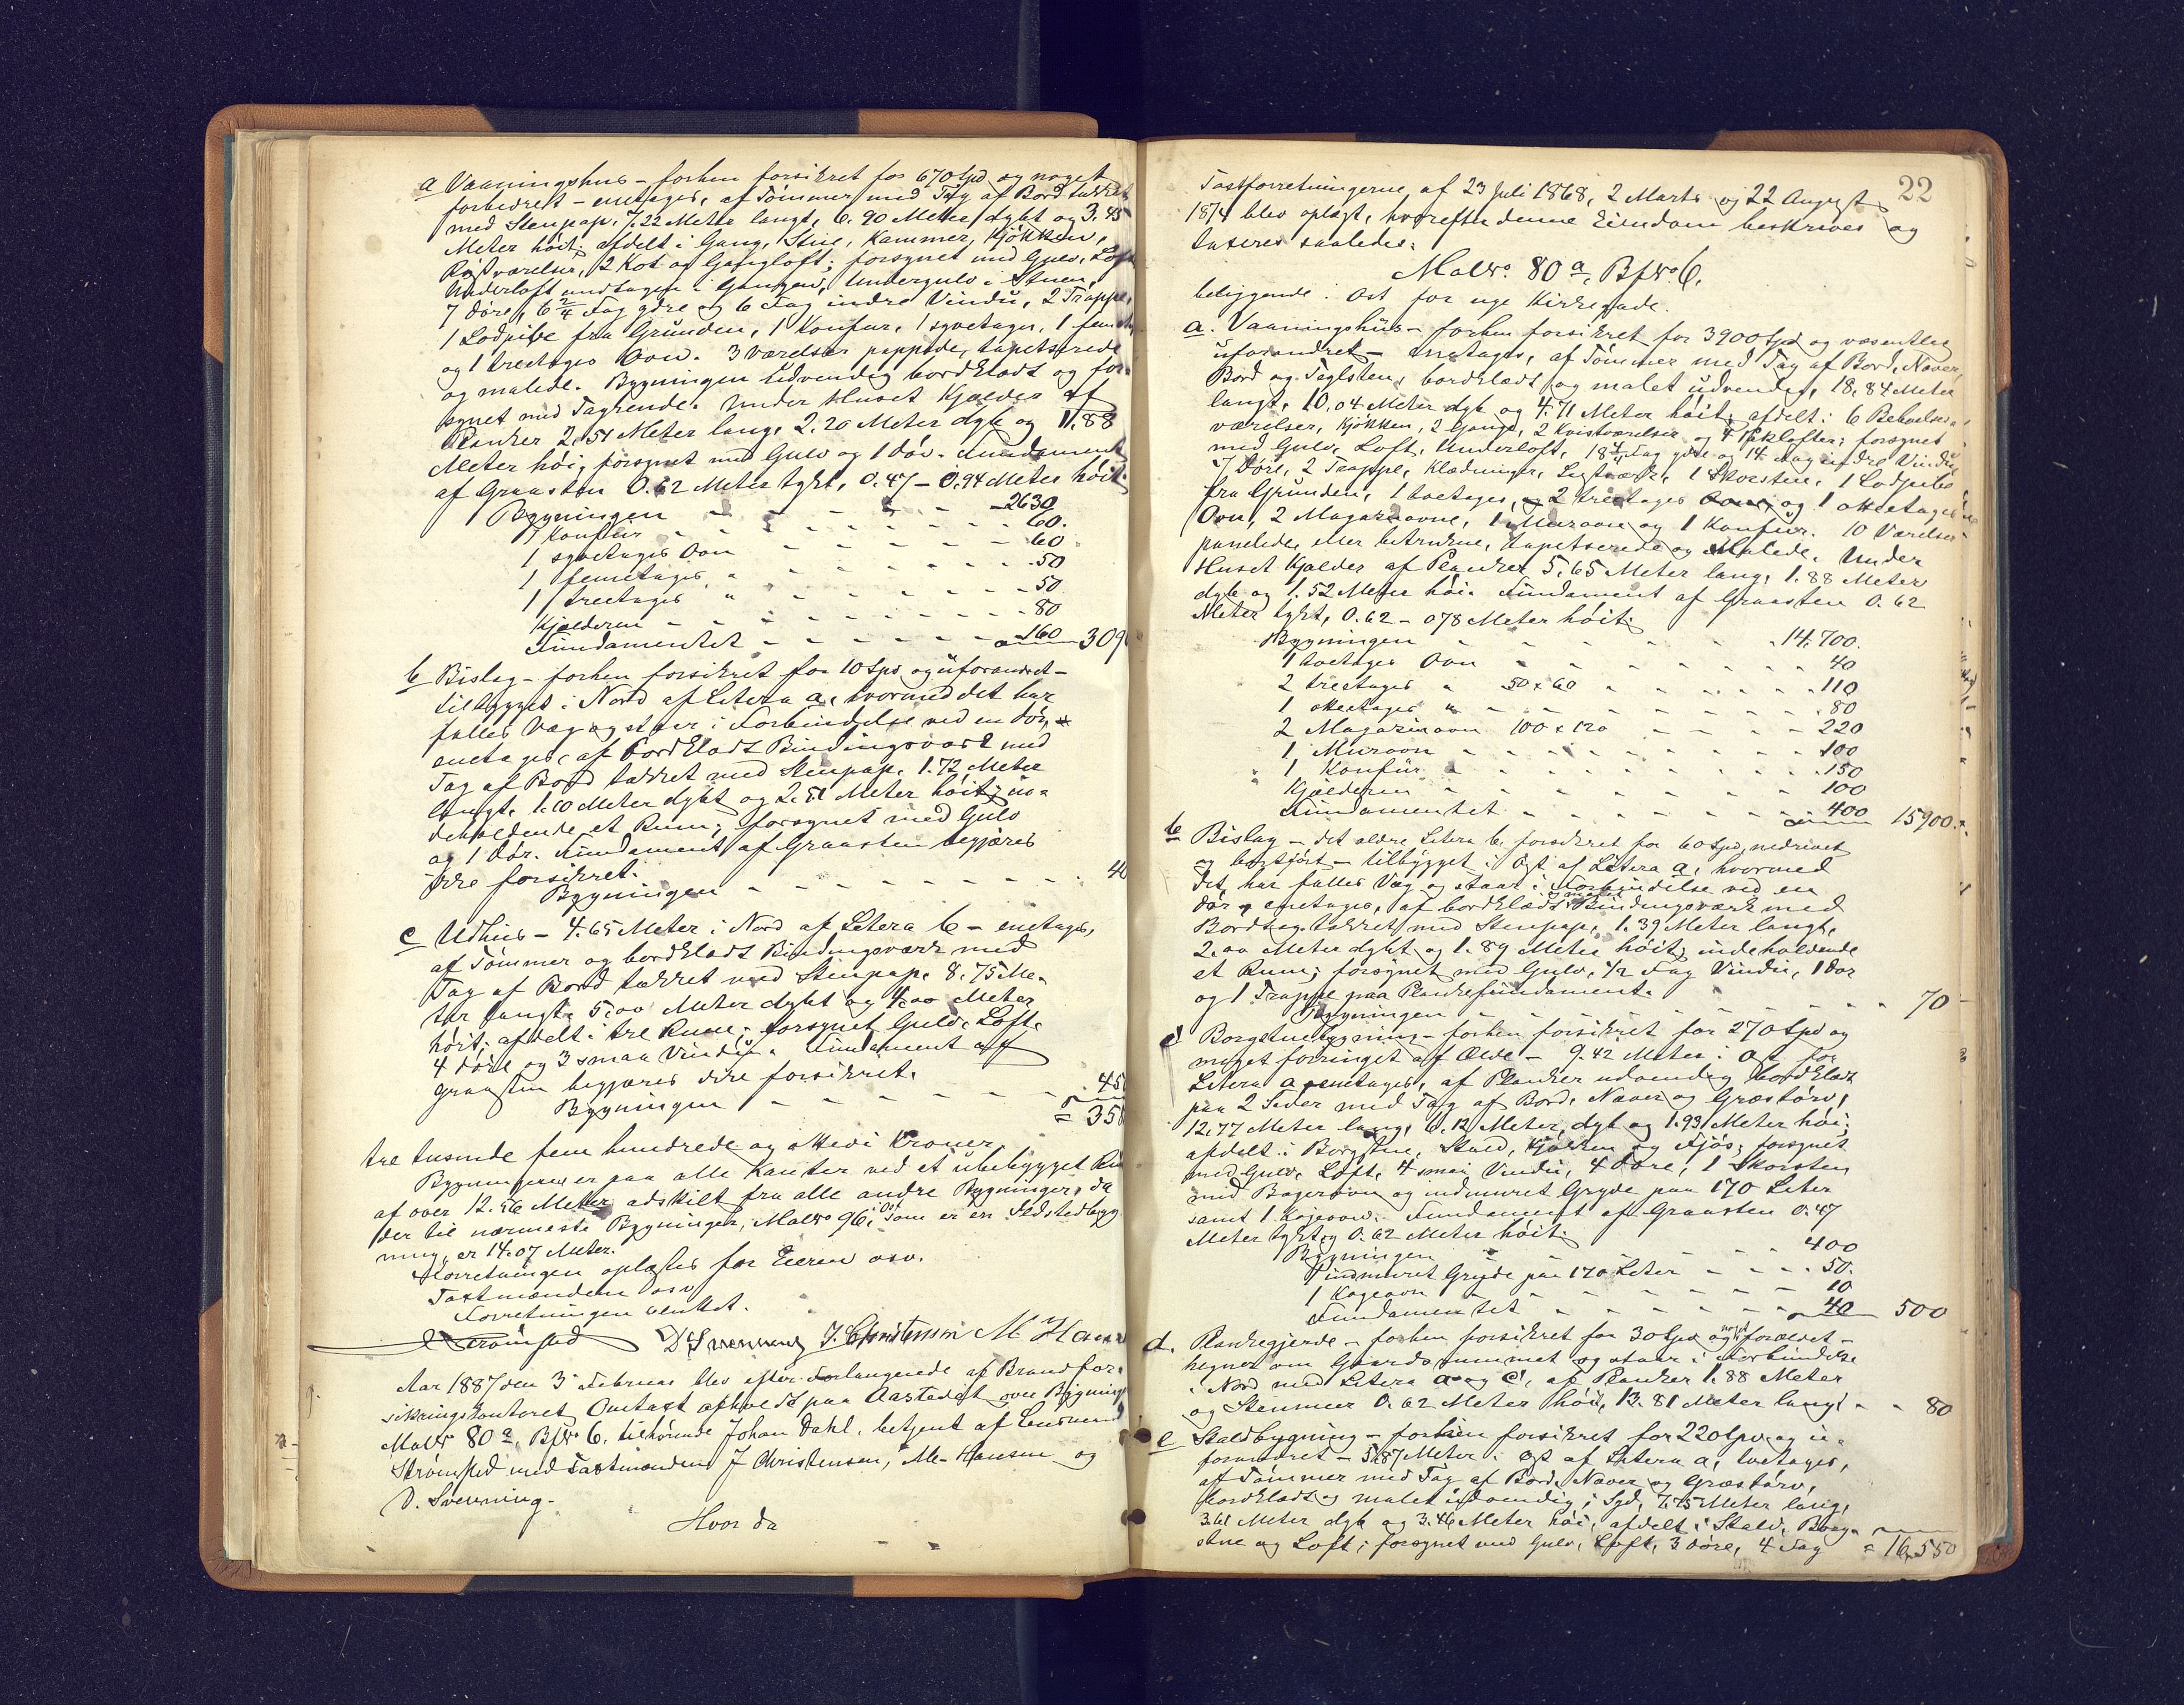 a Vaaningshus – forhen forsikret for 670 Spd og noget
forbedret – enetages, af Tömmer med Tag af Bord tækket
med Stenpap. 7.22 Meter langt, 6.90 Meter dybt og 3.45
Meter höit; afdelt i Gang, Stue, Kammer, Kjökken,
værelser, 2 Kot og Gangloft; forsynet med Gulv, Loft
Underloft undtagen i Gangen, Undergulv i Stuen,
7 Döre, 6 2/4 Fag ydre og 6 Fag indre Vindu, 2 Trapper
1 Lodpibe fra Grunden, 1 Komfur, 1 syvetages, 1 fem
og 1 treetages Ovn. 3 Værelser pappede, tapetserede
og malede. Bygningen udvendig bordklædt og for-
synet med Tagrende. Under Huset Kjælder af
Planker 2.51 Meter lang, 2.20 Meter dyb og 1.88
Meter höi, forsynet med Gulv og 1 Dör. Fundament
af Graasten 0.62 Meter tykt, 0.47 – 0.94 Meter höit.
Bygningen – – – – – 2630
1 Komfur – – – – – 60.
1 syvetages Ovn – – – – – 60
1 femetages " – – – – – 50
1 treetages " – – – – – 50
Kjælderen – – – – – 80
Fundamentet – – – – – 160 309
b Bislag – forhen forsikret for 10 Spd og uforandret –
tilbygget i Nord af Litera a, hvormed det har
fælles Væg og staar i Forbindelse ved en Dör,
enetages, af bordklædt Bindingsværk med
Tag af Bord tækket med Stenpap, 1.72 Meter
langt, 1.10 Meter dybt og 2.51 Meter höit; in-
deholdende et Rum; forsynet med Gulv
og 1 Dör. Fundament af Graasten begjæres
ikke forsikret.
Bygningen – – – – – – – 40
c Udhus – 4.65 Meter i Nord af Litera b – enetages,
af Tömmer og bordklædt Bindingsværk med
Tag af Bord tækket med Stenpap. 8.75 Me-
ter langt, 5.00 Meter dybt og 4.00 Meter
höit; afdelt i tre Rum; forsynet Gulv, Loft,
4 Döre og 3 smaa Vindu. Fundament af
graasten begjæres ikke forsikret.
Bygningen – – – – – – 45
= 358
tre tusinde fem hundrede og otteti Kroner
Bygningerne er paa alle Kanter ved et ubebygget Ru
af over 12.56 Meter adskilt fra alle andre Bygninger, da
der til nærmeste Bygninger, Matr No 96 i Öst som er en Ildstedbyg
ning, er 14.07 Meter.
Forretningen oplæstes for Eieren osv.
Taxtmændene osv
Forretningen sluttet.
Strömsted D Svenning J. Christensen M Hansen
Aar 1887 den 3 Februar blev efter Forlangende af Brandfor-
sikringskontoret Omtaxt afholdt paa Aastedet over Bygning
Matr No 80 a, Bf No 6, tilhörende Johan Dahl, betjent af Lensmand
Strömsted med Taxtmændene J Christensen, M. Hansen og
D. Svenning.
Hvor da
22
Taxtforretningerne af 23 Juli 1868, 2 Marts og 22 August
1874 blev oplæst, hvorefter denne Eiendom beskrives og
taxeres saaledes:
Matr No. 80 a, Bf No. 6,
beliggende i Öst for nye Kirkegade.
a. Vaaningshus – forhen forsikret for 3900 Spd og væsentlig
uforandret – enetages, af Tömmer med Tag af Bord, Næver,
Bord og Teglsten, bordklædt og malet udvendig, 18.84 Meter
langt, 10.04 Meter dybt og 4.71 Meter höit; afdelt i 6 Beboelses-
værelser, Kjökken, 2 Gange, 2 Kvistværelser og 4 Kotlofter; forsynet
med Gulv, Loft, Underloft, 18 4/4 Fag ydre og 14 Fag indre Vindu
7 Döre, 2 Trapper, Klædninger, Listværk, 1 Skorsten, 1 Lodpibe
fra Grunden, 1 toetages, 2 treetages og 1 otteetages
Ovn, 2 Magazinovne, 1 Murovn og 1 Komfur. 10 Værelser
panelede eller betrukne, tapetserede og Malede. Under
Huset Kjælder af Planker 5.65 Meter lang, 1.88 Meter
dyb og 1.52 Meter höi. Fundament af Graasten 0.62
Meter tykt, 0.62 – 0.78 Meter höit.
Bygningen – – – – – 14.700.
1 toetages Ovn – – – – – 40
2 treetages " 50 + 60 – – – 110
1 otteetages " – – – – – 80
2 Magazinovn 100 + 120 – – – 220
1 Murovn – – – – – 100
1 Komfur – – – – – 150
Kjælderen – – – – – 100
Fundamentet – – – – – 400 15900.
b Bislag – det ældre Litera b, forsikret for 60 Spd, nedrevet
og bortfört – tilbygget i Öst af Litera a, hvormed
det har fælles Væg og staar i Forbindelse ved en
Dör, enetages, af bordklædt og malet Bindingsværk med
Bordtag tækket med Stenpap, 1.39 Meter langt,
2.00 Meter dybt og 1.89 Meter höit; indeholdende
et Rum; forsynet med Gulv, 1/2 Fag Vindu, 1 Dör
og 1 Trappe paa Plankefundament.
Bygningen – – – – – – 70
c Borgstuebygning – forhen forsikret for 270 Spd og
meget forringet af Ælde – 9.42 Meter i Öst for
Litera a, enetages, af Planker udvendig bordklædt
paa 2 Sider med Tag af Bord, Næver og Græstörv,
12.77 Meter lang, 6.12 Meter dyb og 1.93 Meter höi;
afdelt i Borgstue, Stald, Kjökken og Fjös; forsynet
med Gulv, Loft, 4 smaa Vindu, 4 Döre, 1 Skorsten
med Bagerovn og indmuret Gryde paa 170 Liter
samt 1 Kogeovn. Fundament af Graasten 0.47
Meter tykt og 0.62 Meter höit.
Bygningen – – – – – 400
1 indmuret Gryde paa 170 Liter – – – 50.
1 Kogeovn – – – – – 10
Fundamentet – – – – – 40 500
d. Plankegjerde – forhen forsikret for 30 Spd og noget forældet –
hegner om Gaardsrummet og staar i Forbindelse
i Nord med Litera a og c, af Planker 1.88 Meter
og Stenmur 0.62 Meter höit, 13.81 Meter langt – – 80
e Staldbygning – forhen forsikret for 220 Spd og u-
forandret – 5.87 Meter i Öst af Litera a, toetages,
af Tömmer med Tag af Bord, Næver og Græstörv,
bordklædt og malet udvendig i Syd, 7.75 Meter lang,
3.61 Meter dyb og 3.46 Meter höi, afdelt i Stald, Borg-
stue og Loft; forsynet med Gulv, Loft, 3 Döre, 4 Fag = 16,550